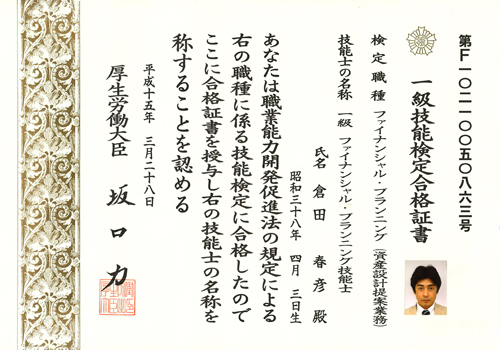 第F一〇二一〇〇五〇八六三号
一級技能検定合格証書
検定職種 ファイナンシャル・プランニング(資産設計提案業務)
技能士の名称 一級 ファイナンシャル・プランニング技能士
氏名 倉田 春彦 殿
昭和三十八年 四月 三日生
あなたは職業能力開発促進法の規定による
右の職種に係る技能検定に合格したので
ここに合格証書を授与し右の技能士の名称を
称することを認める
平成十五年 三月二十八日
厚生労働大臣 坂口力